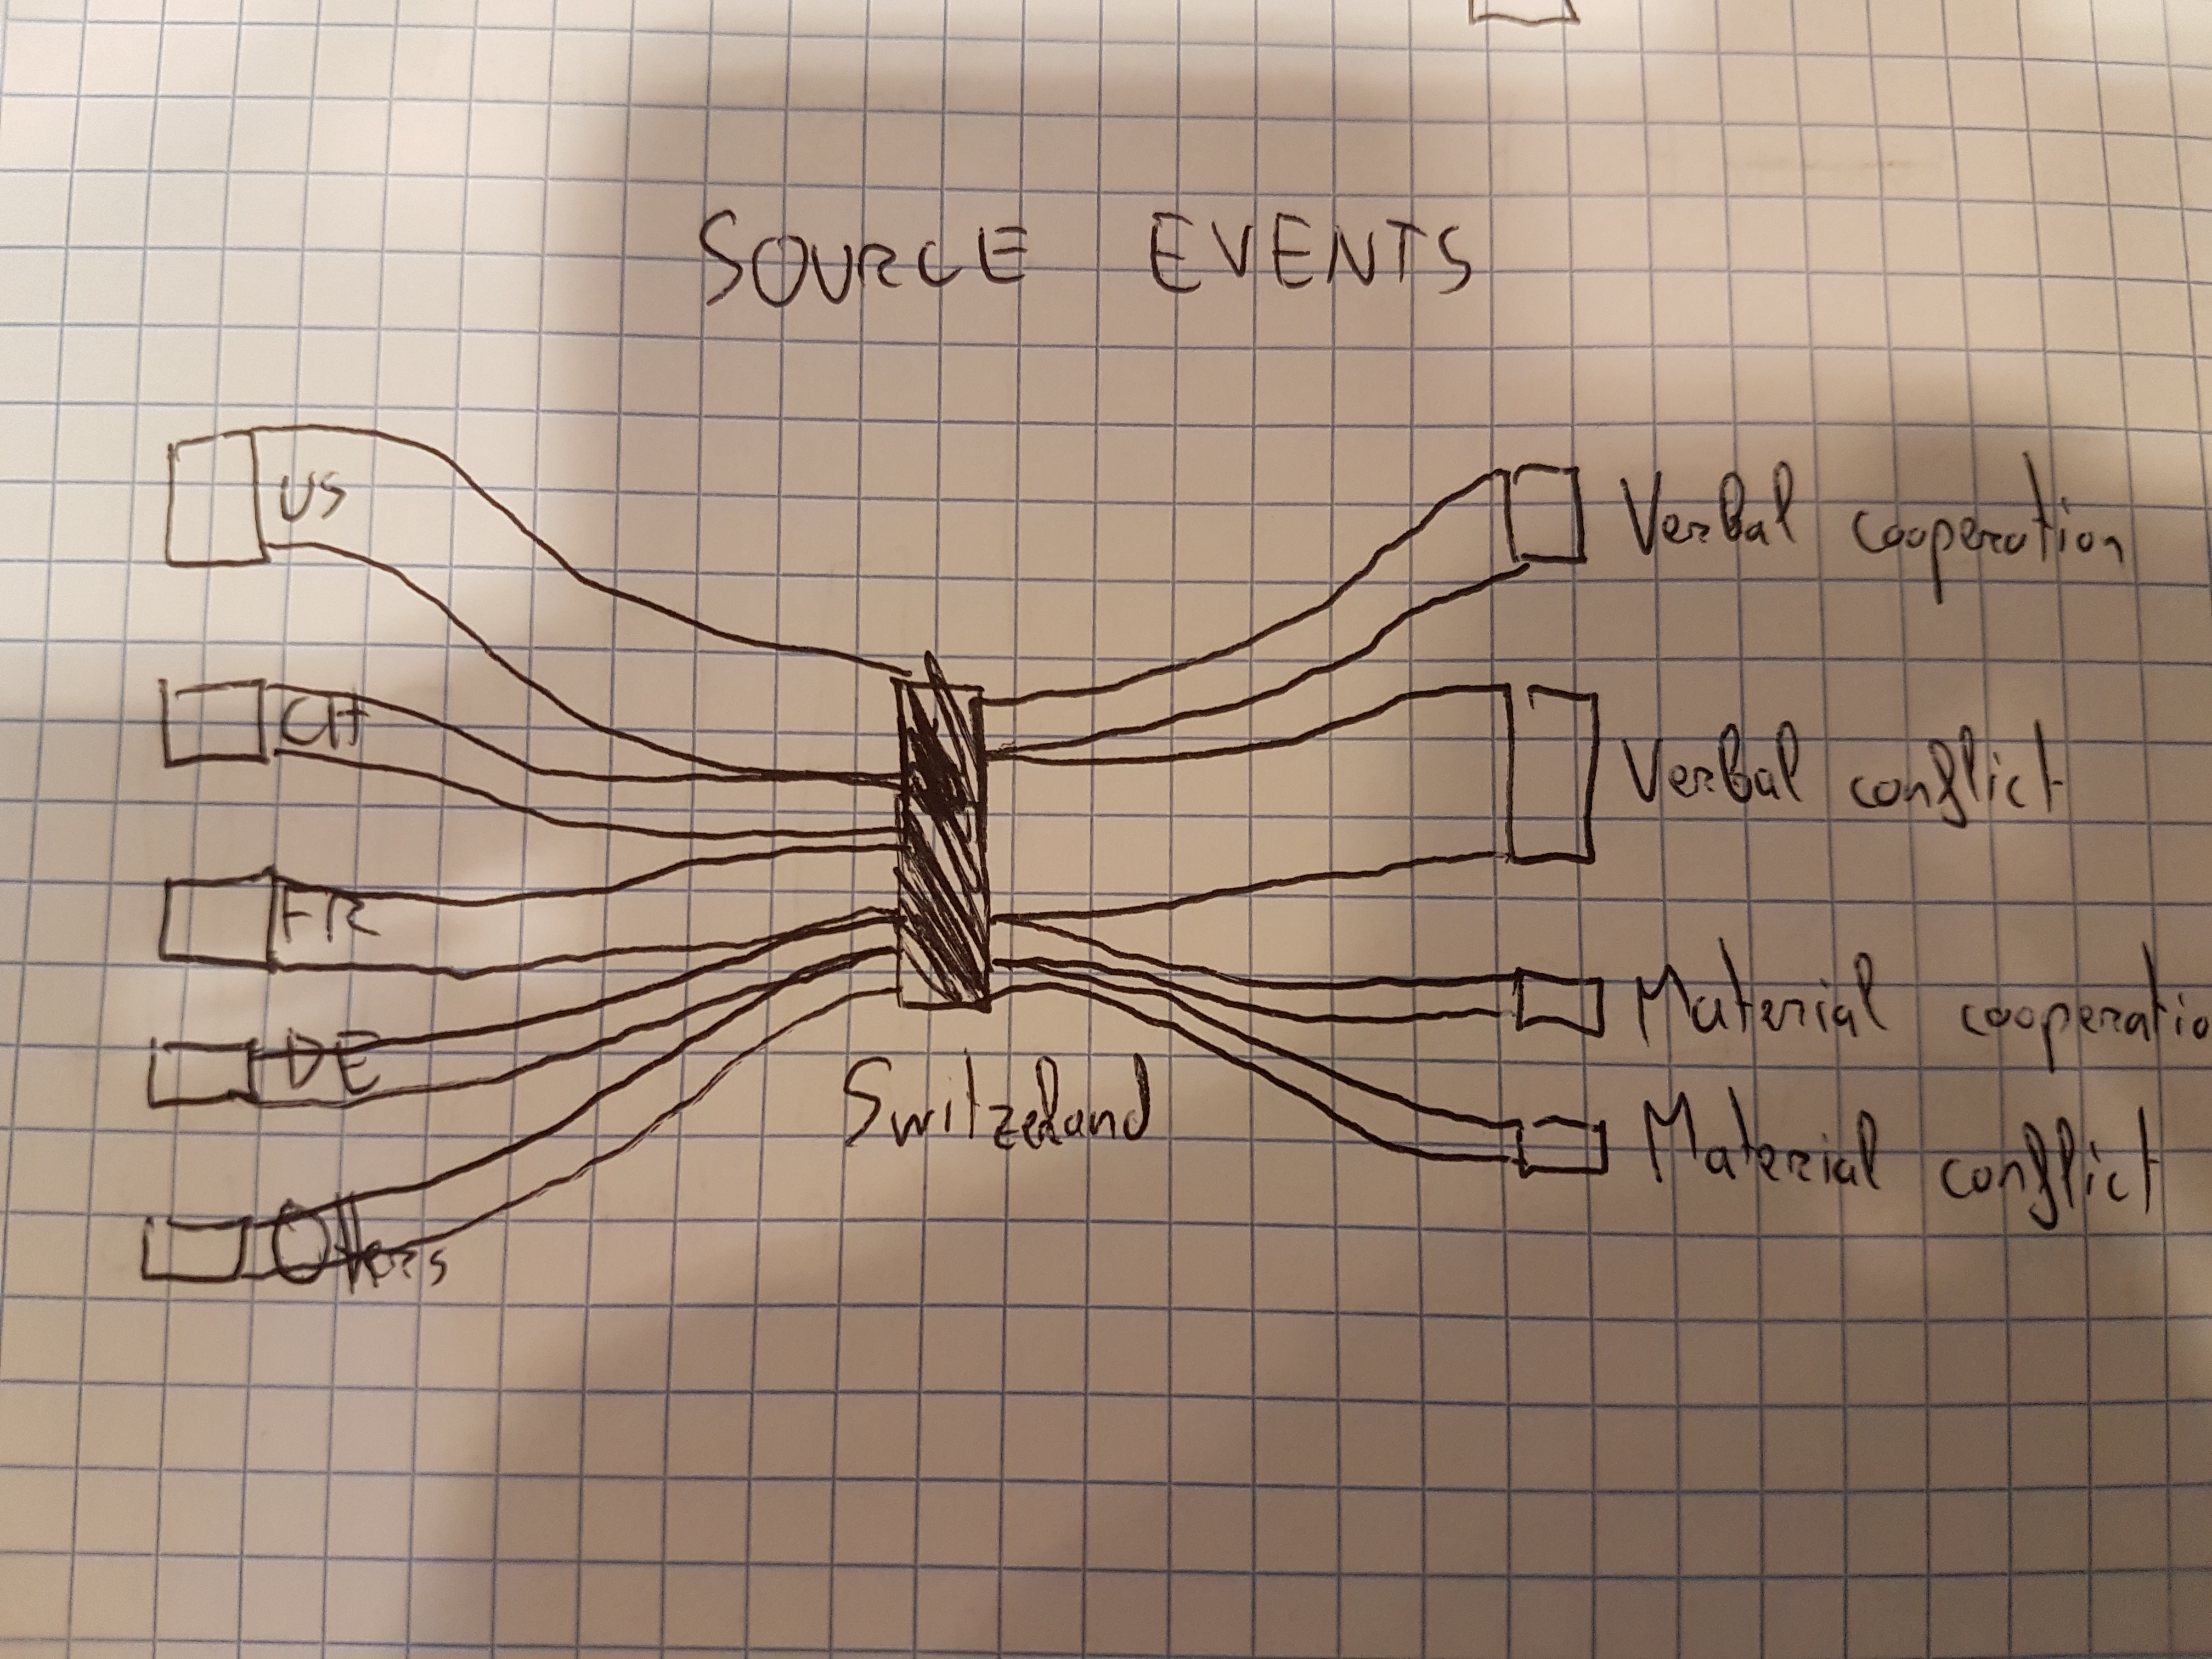 SOURCE EVENTS
US
CH
FR
DE
Others
Switzerland
Verbal cooperation
Verbal conflict
Material cooperatio
Material conflict